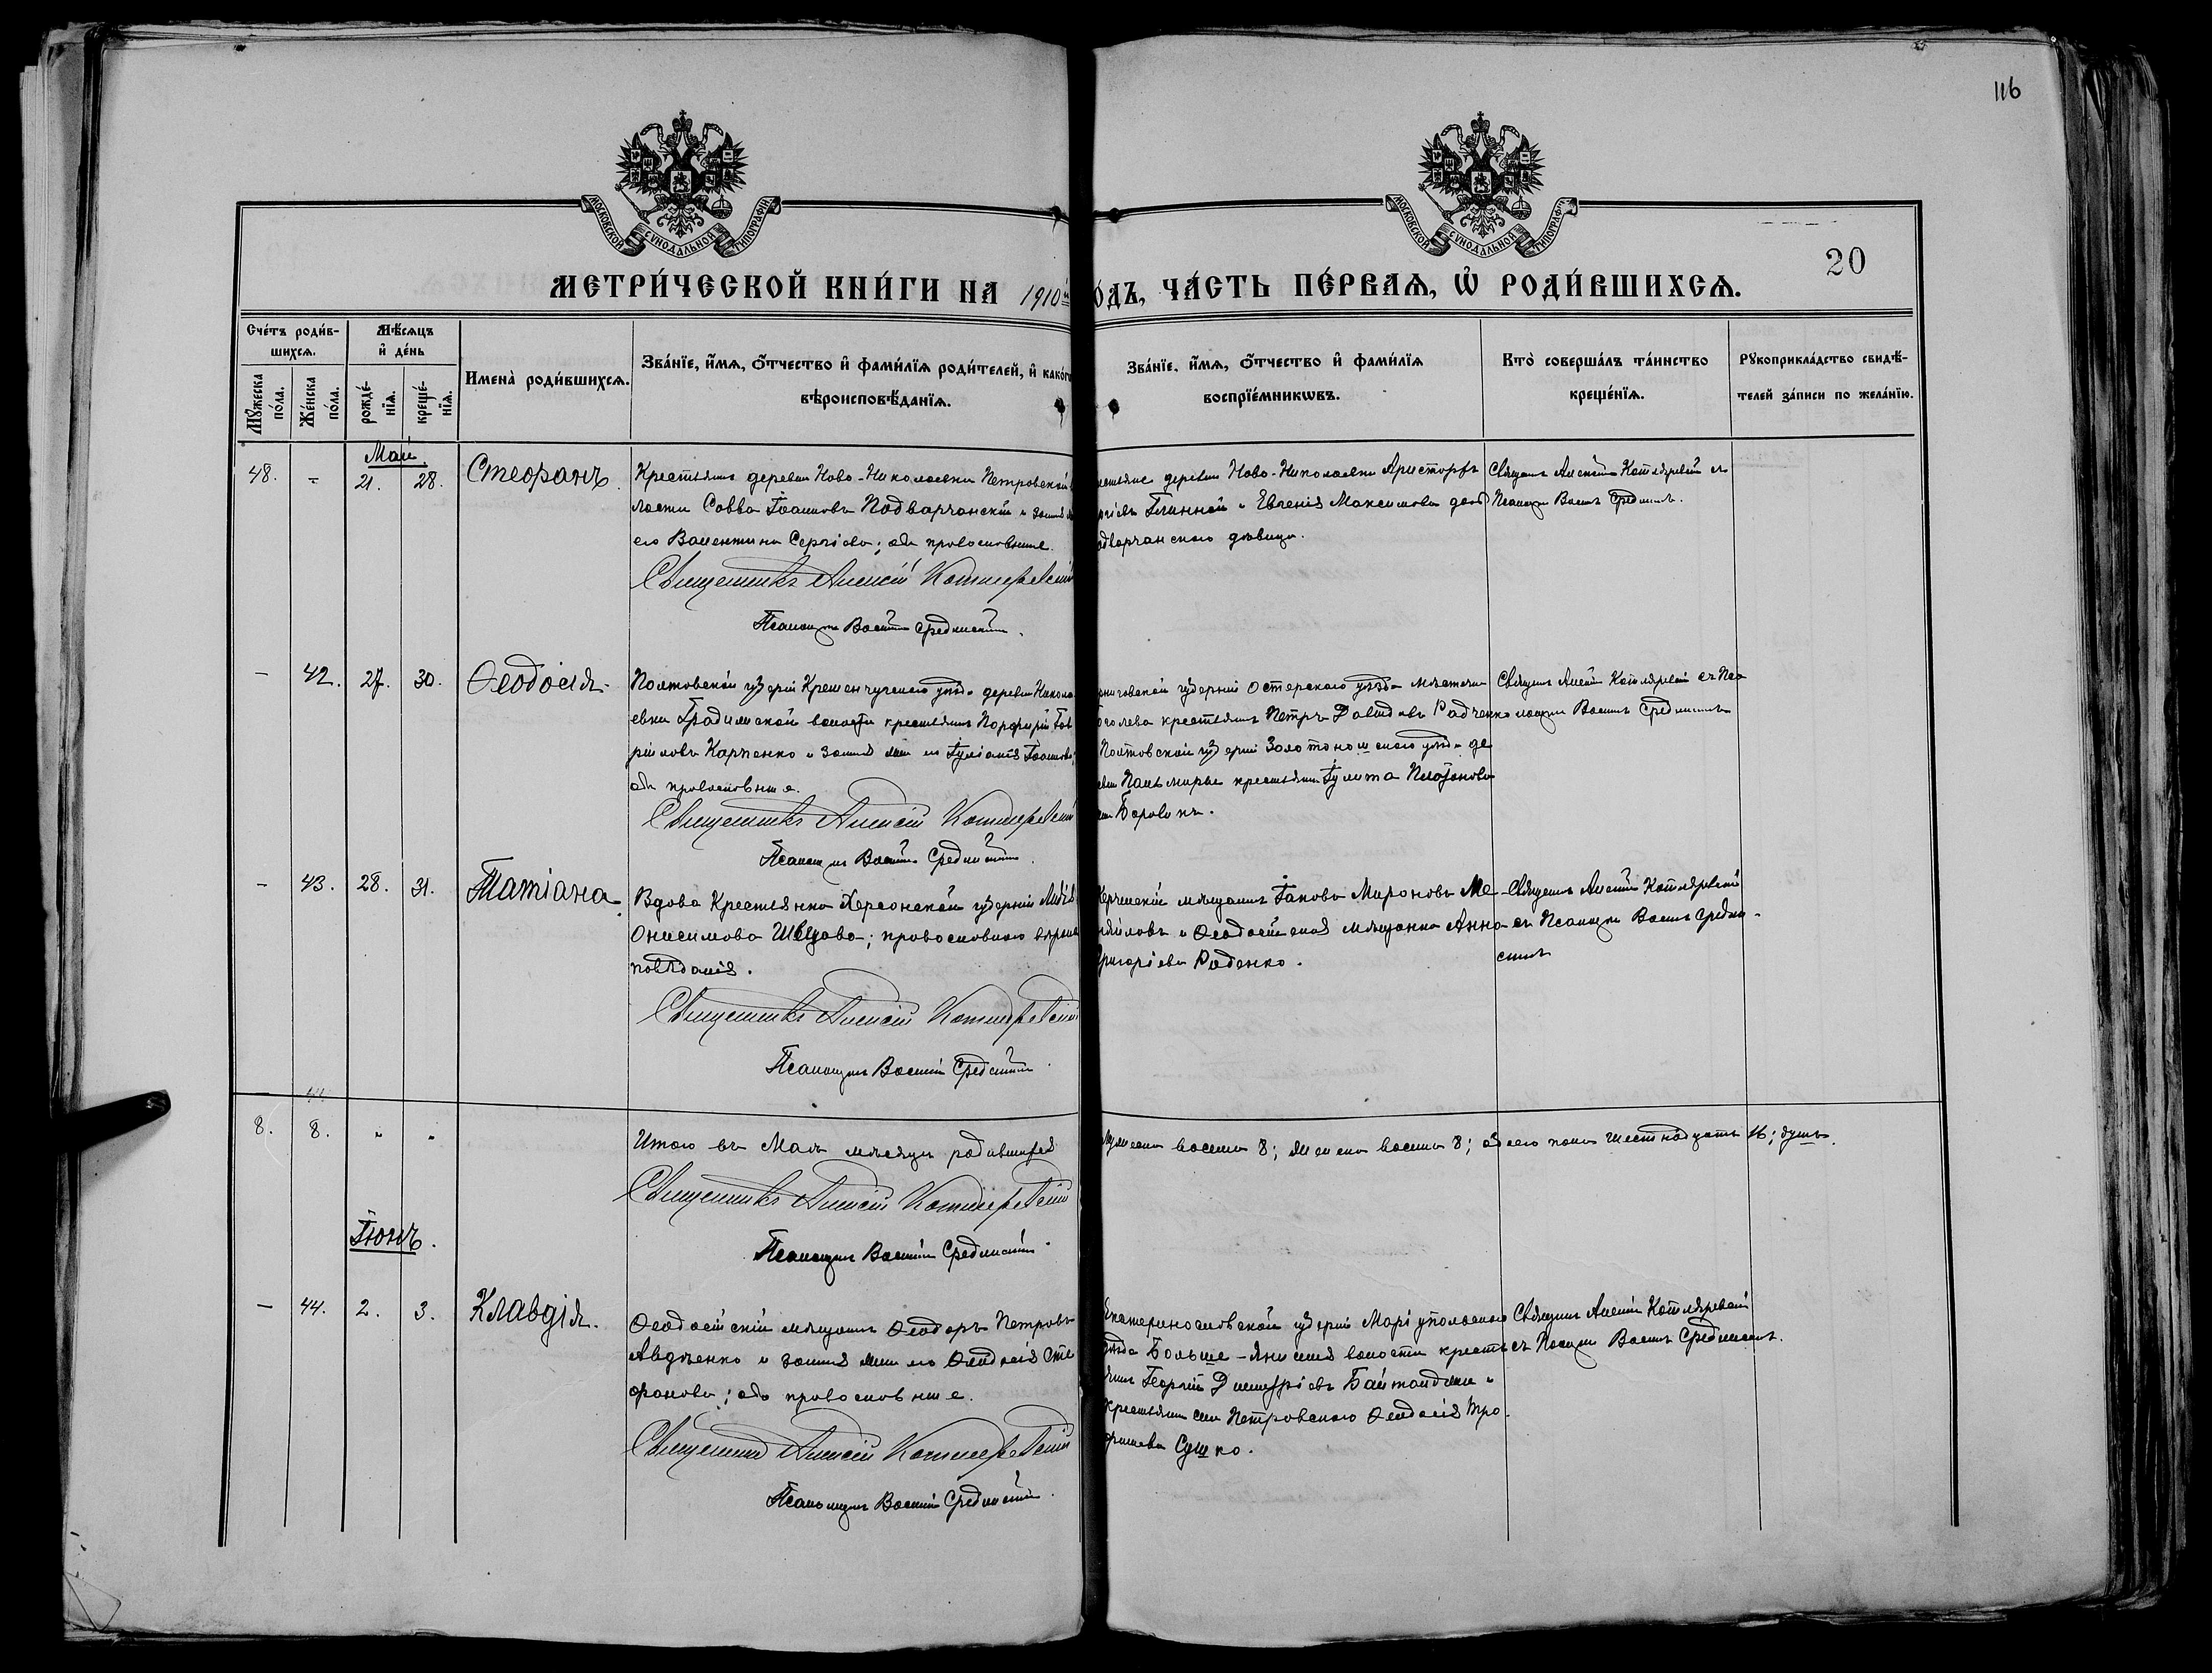 116
МОСКОВСКОЙ СУНОДАЛЬНОЙ ТИПОГРАФІИ
МОСКОВСКОЙ СУНОДАЛЬНОЙ ТИПОГРАФІИ
20
МЕТРИ́ЧЕСКОЙ КНИ́ГИ НА 1910 ОДЪ, ЧА́СТЬ ПЕ́РВАѦ, Ѡ РОДИ́ВШИХСѦ.
Сче́тъ роди́в-
шихсѧ.
Мѣ́сѧцъ
и҆ де́нь
Мꙋ́жеска по́ла.
Же́нска по́ла.
рожде́-
нїѧ.
креще́-
нїѧ.
Имена̀ роди́вшихсѧ.
Зва́нїе, и҆́мѧ, ѻ҆́тчество и҆ фами́лїѧ роди́телей, и҆ како́гѡ
вѣроисповѣ́данїѧ.
Зва́нїе, и҆́мѧ, ѻ҆́тчество и҆ фами́лїѧ
воспрїе́мникѡвъ.
Кто̀ соверша́лъ та́инство
креще́нїѧ.
Рꙋкоприкла́дство свидѣ́-
телей за́писи по жела́нїю.
Май.
48. - 21. 28. Стефанъ.
Крестьянинъ деревни Ново-Николаевки Петровской
лости Савва Іоанновъ Подварчанскій и
его Валентина Сергіева; оба православные.
Священникъ Алексій Котляревскій
Псаломщикъ Василій Срединскій.
деревни Ново-Николаевки
Глинной и Евгенія Максимова
дворчанского дѣвица.
Священ. Алексій Котляревскій съ
Псаломщ. Васил. Срединск.
- 42. 27. 30. Ѳеодосія.
Полтавской губерніи Кременчугскаго уѣзда деревни Никола
евки Градижской волости крестьянинъ Порфирій Гав
риловъ Карпенко и законная жена его Іуліанія Іоаннова;
оба православные.
Священникъ Алексій Котляревскій
Псаломщикъ Василій Срединскій.
губерніи Остерскаго уѣзда мѣстечка
крестьянинъ Петръ Давидовъ Радченко
Полтавской губерніи Золотоношскаго уѣзда де
Пальмиры крестьянка Іулита Платонова
Боровикъ.
Священ. Алексій Котляревскій съ Пса
ломщик. Васил. Срединскимъ
- 43. 28. 31. Татіана.
Вдова Крестьянка Херсонской губерніи
Онисимова Швецова; православнаго вѣроис
повѣданія.
Священникъ Алексій Котляревскій
Псаломщикъ Василій Срединскій.
Керченскій мѣщанинъ Іаковъ Мироновъ Ме
и Ѳеодосійская мѣщанка Анна
Григоріева Раденко.
Священ. Алексій Котляревскій
съ Псаломщик. Васил. Средин-
скимъ
8. 8. " "
Итого въ Маѣ мѣсяцѣ родившихся
мужеска восемь 8; женска восемь 8; обоего пола шестнадцать 16; душъ.
Священникъ Алексій Котляревскій
Псаломщикъ Василій Срединскій.
Іюнь.
- 44. 2. 3. Клавдія.
Ѳеодосійскій мѣщанинъ Ѳеодоръ Петровъ
Авдѣенко и законная жена его Ѳеодосія Сте
фанова; оба православные.
Священникъ Алексій Котляревскій
Псаломщикъ Василій Срединскій.
Екатеринославской губерніи Маріупольскаго
уѣзда Больше-Янисоля волости кресть
янинъ Георгій Димитріевъ и
крестьянка села Петровскаго Ѳеодосія Тро
фимова Сушко.
Священ. Алексій Котляревскій
съ Псаломщ. Васил. Срединскимъ.